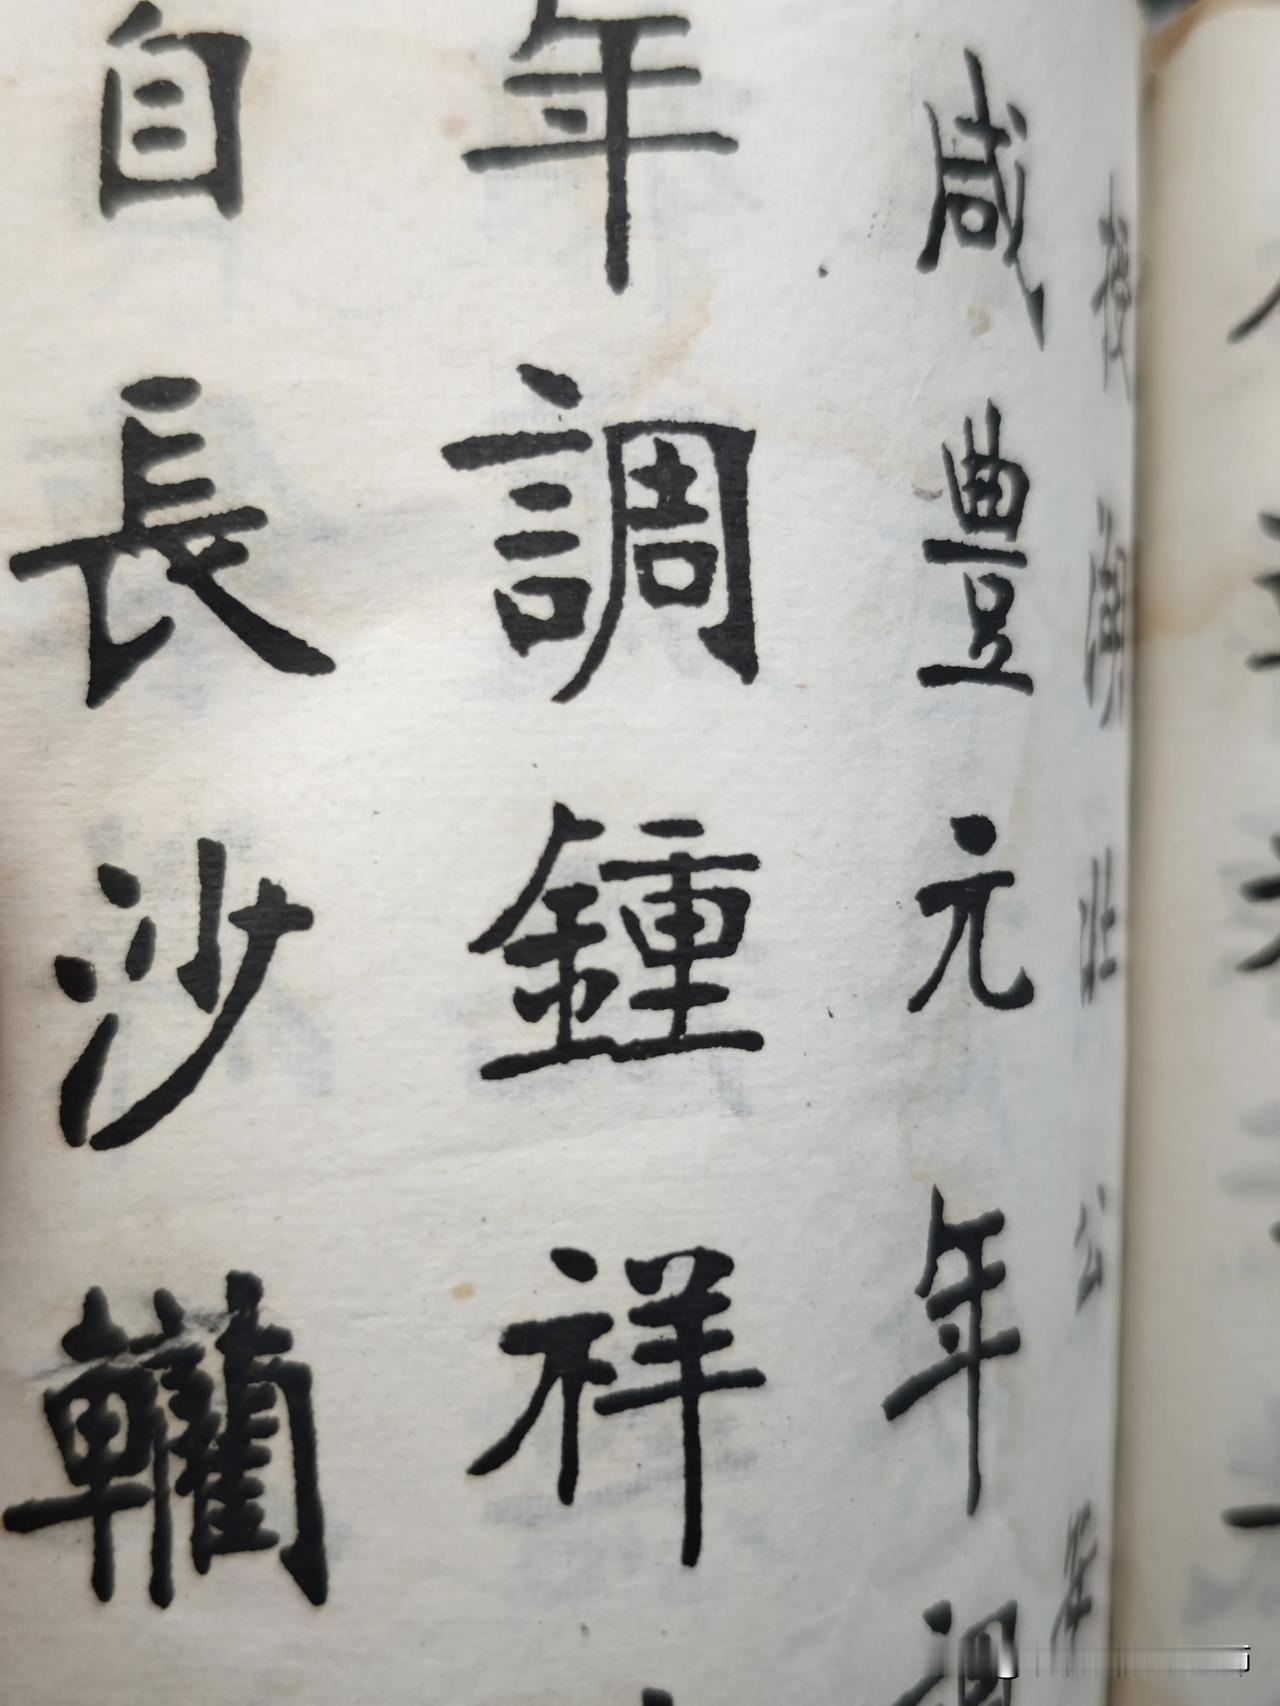 授湖北公安
咸豐元年調
年調鍾祥
自長沙轥